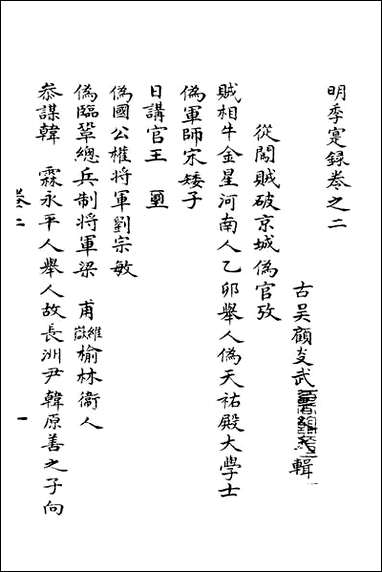 明季寔録卷之二
古吳顧炎武輯
從闖賊破京城偽官攷
賊相牛金星河南人乙卯舉人偽天祐殿大學士
偽軍師宋矮子
日講官王
偽國公權将軍劉宗敏
偽臨鞏總兵制将軍梁　甫維嶽榆林衞人
叅謀韓　霖永平人舉人故長洲尹韓原善之子向
卷二　一